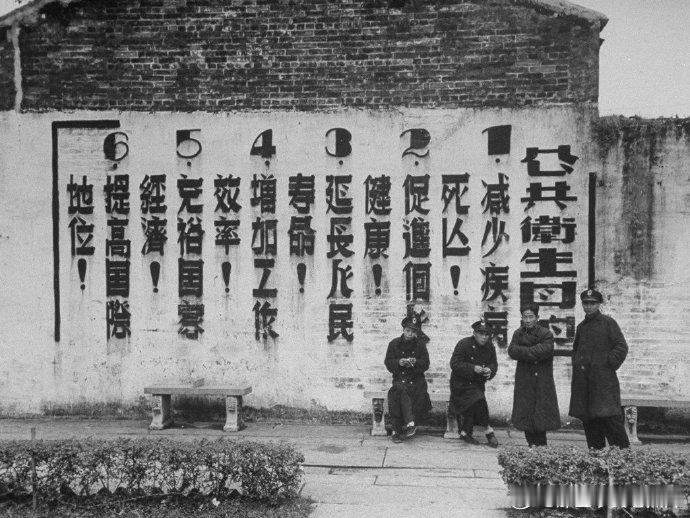 公共衛生目的
1. 减少疾病
死亡！
2. 促進個
健康！
3. 延長人民
寿命！
4. 增加工作
效率！
5. 充裕國家
經濟！
6. 提高國際
地位！